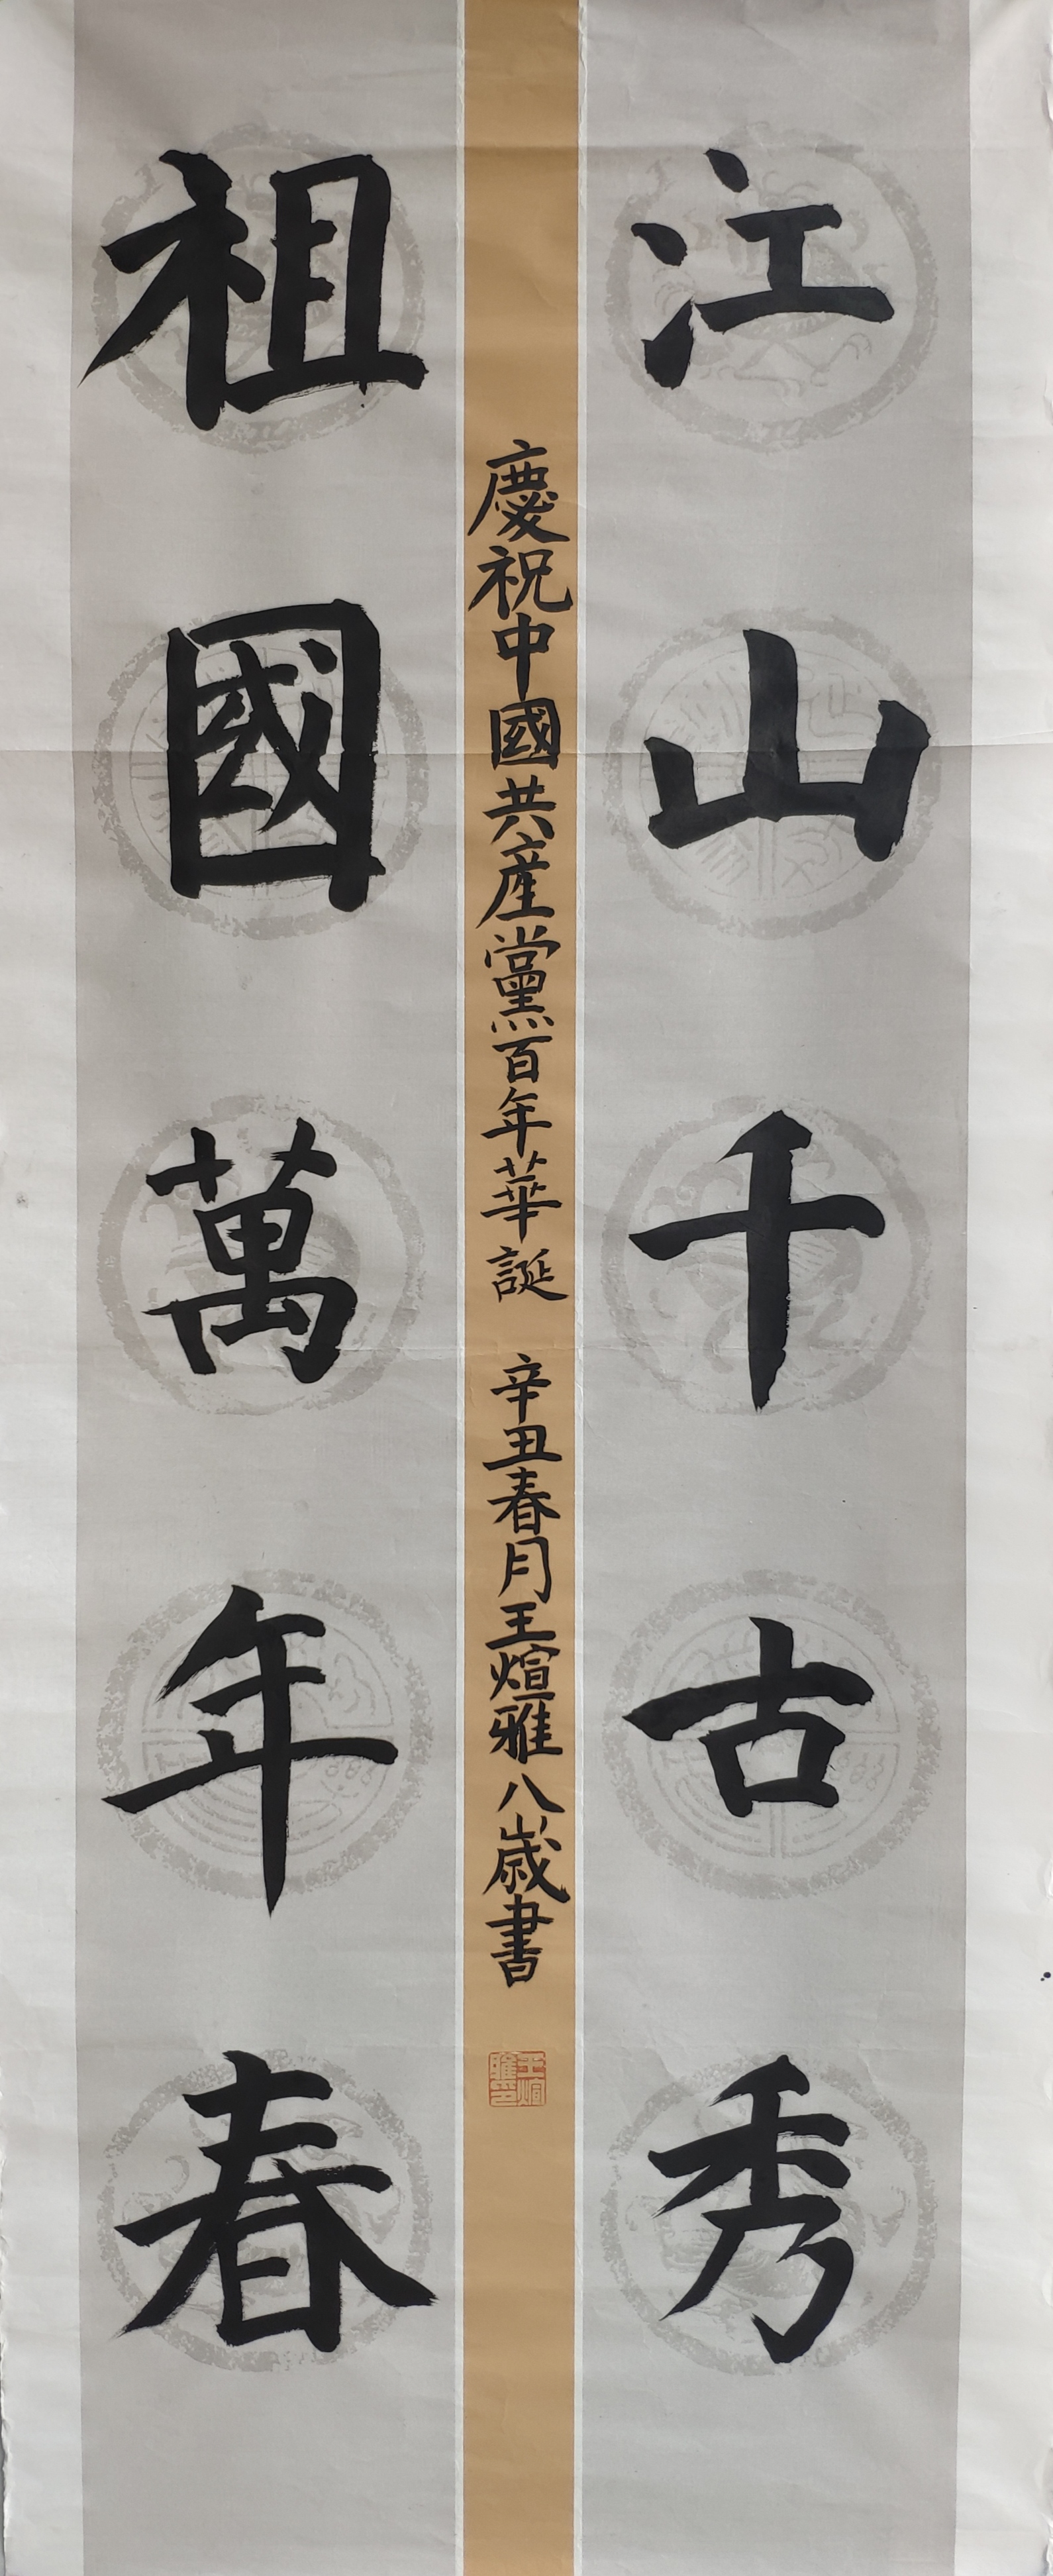 江山千古秀
祖國萬年春
慶祝中國共產黨百年華誕 辛丑春月王煊雅八歲書
王煊雅印